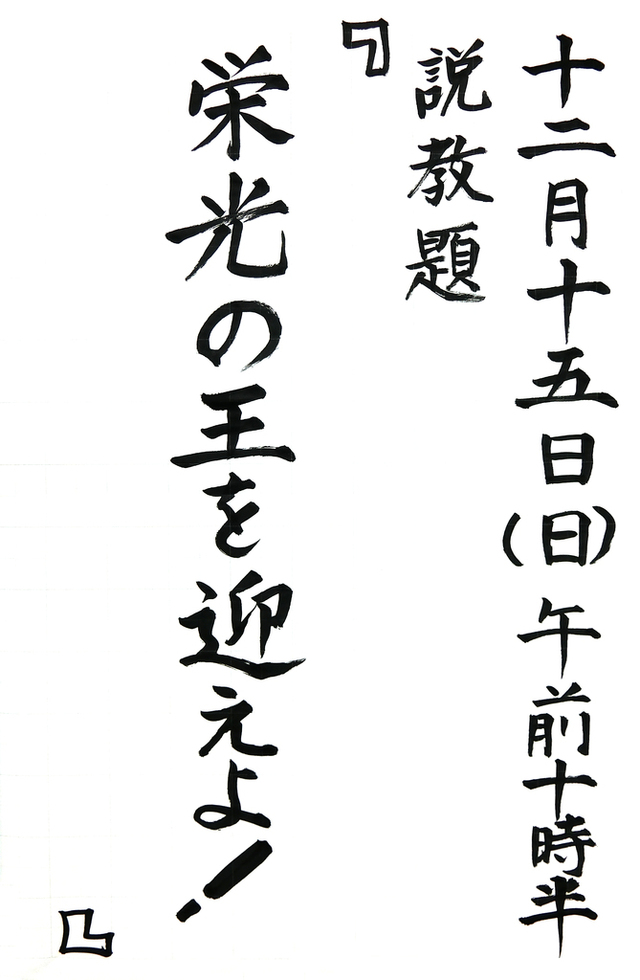 十二月十五日(日)午前十時半
説教題
『栄光の王を迎えよ!』